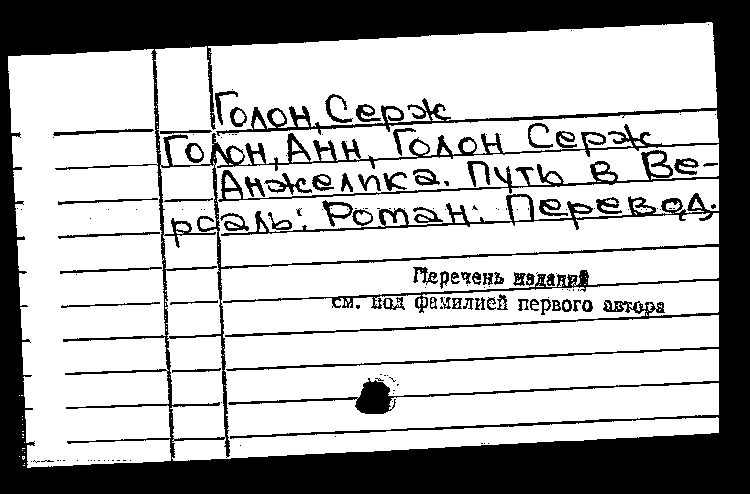 Голон, Серж
Голон, Анн, Голон Серж
Анжелика. Путь в Ве-
рсаль: Роман: Перевод.
Перечень изданий
см. под фамилией первого автора